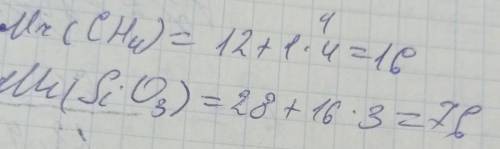 Mr(CH₄) = 12 + 1 · 4 = 16
Mr(SiO₃) = 28 + 16 · 3 = 76